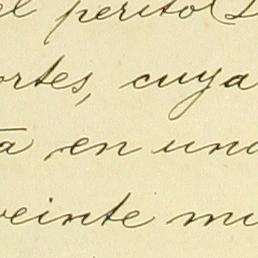 el perito
ortes, cuya
en una
veinte